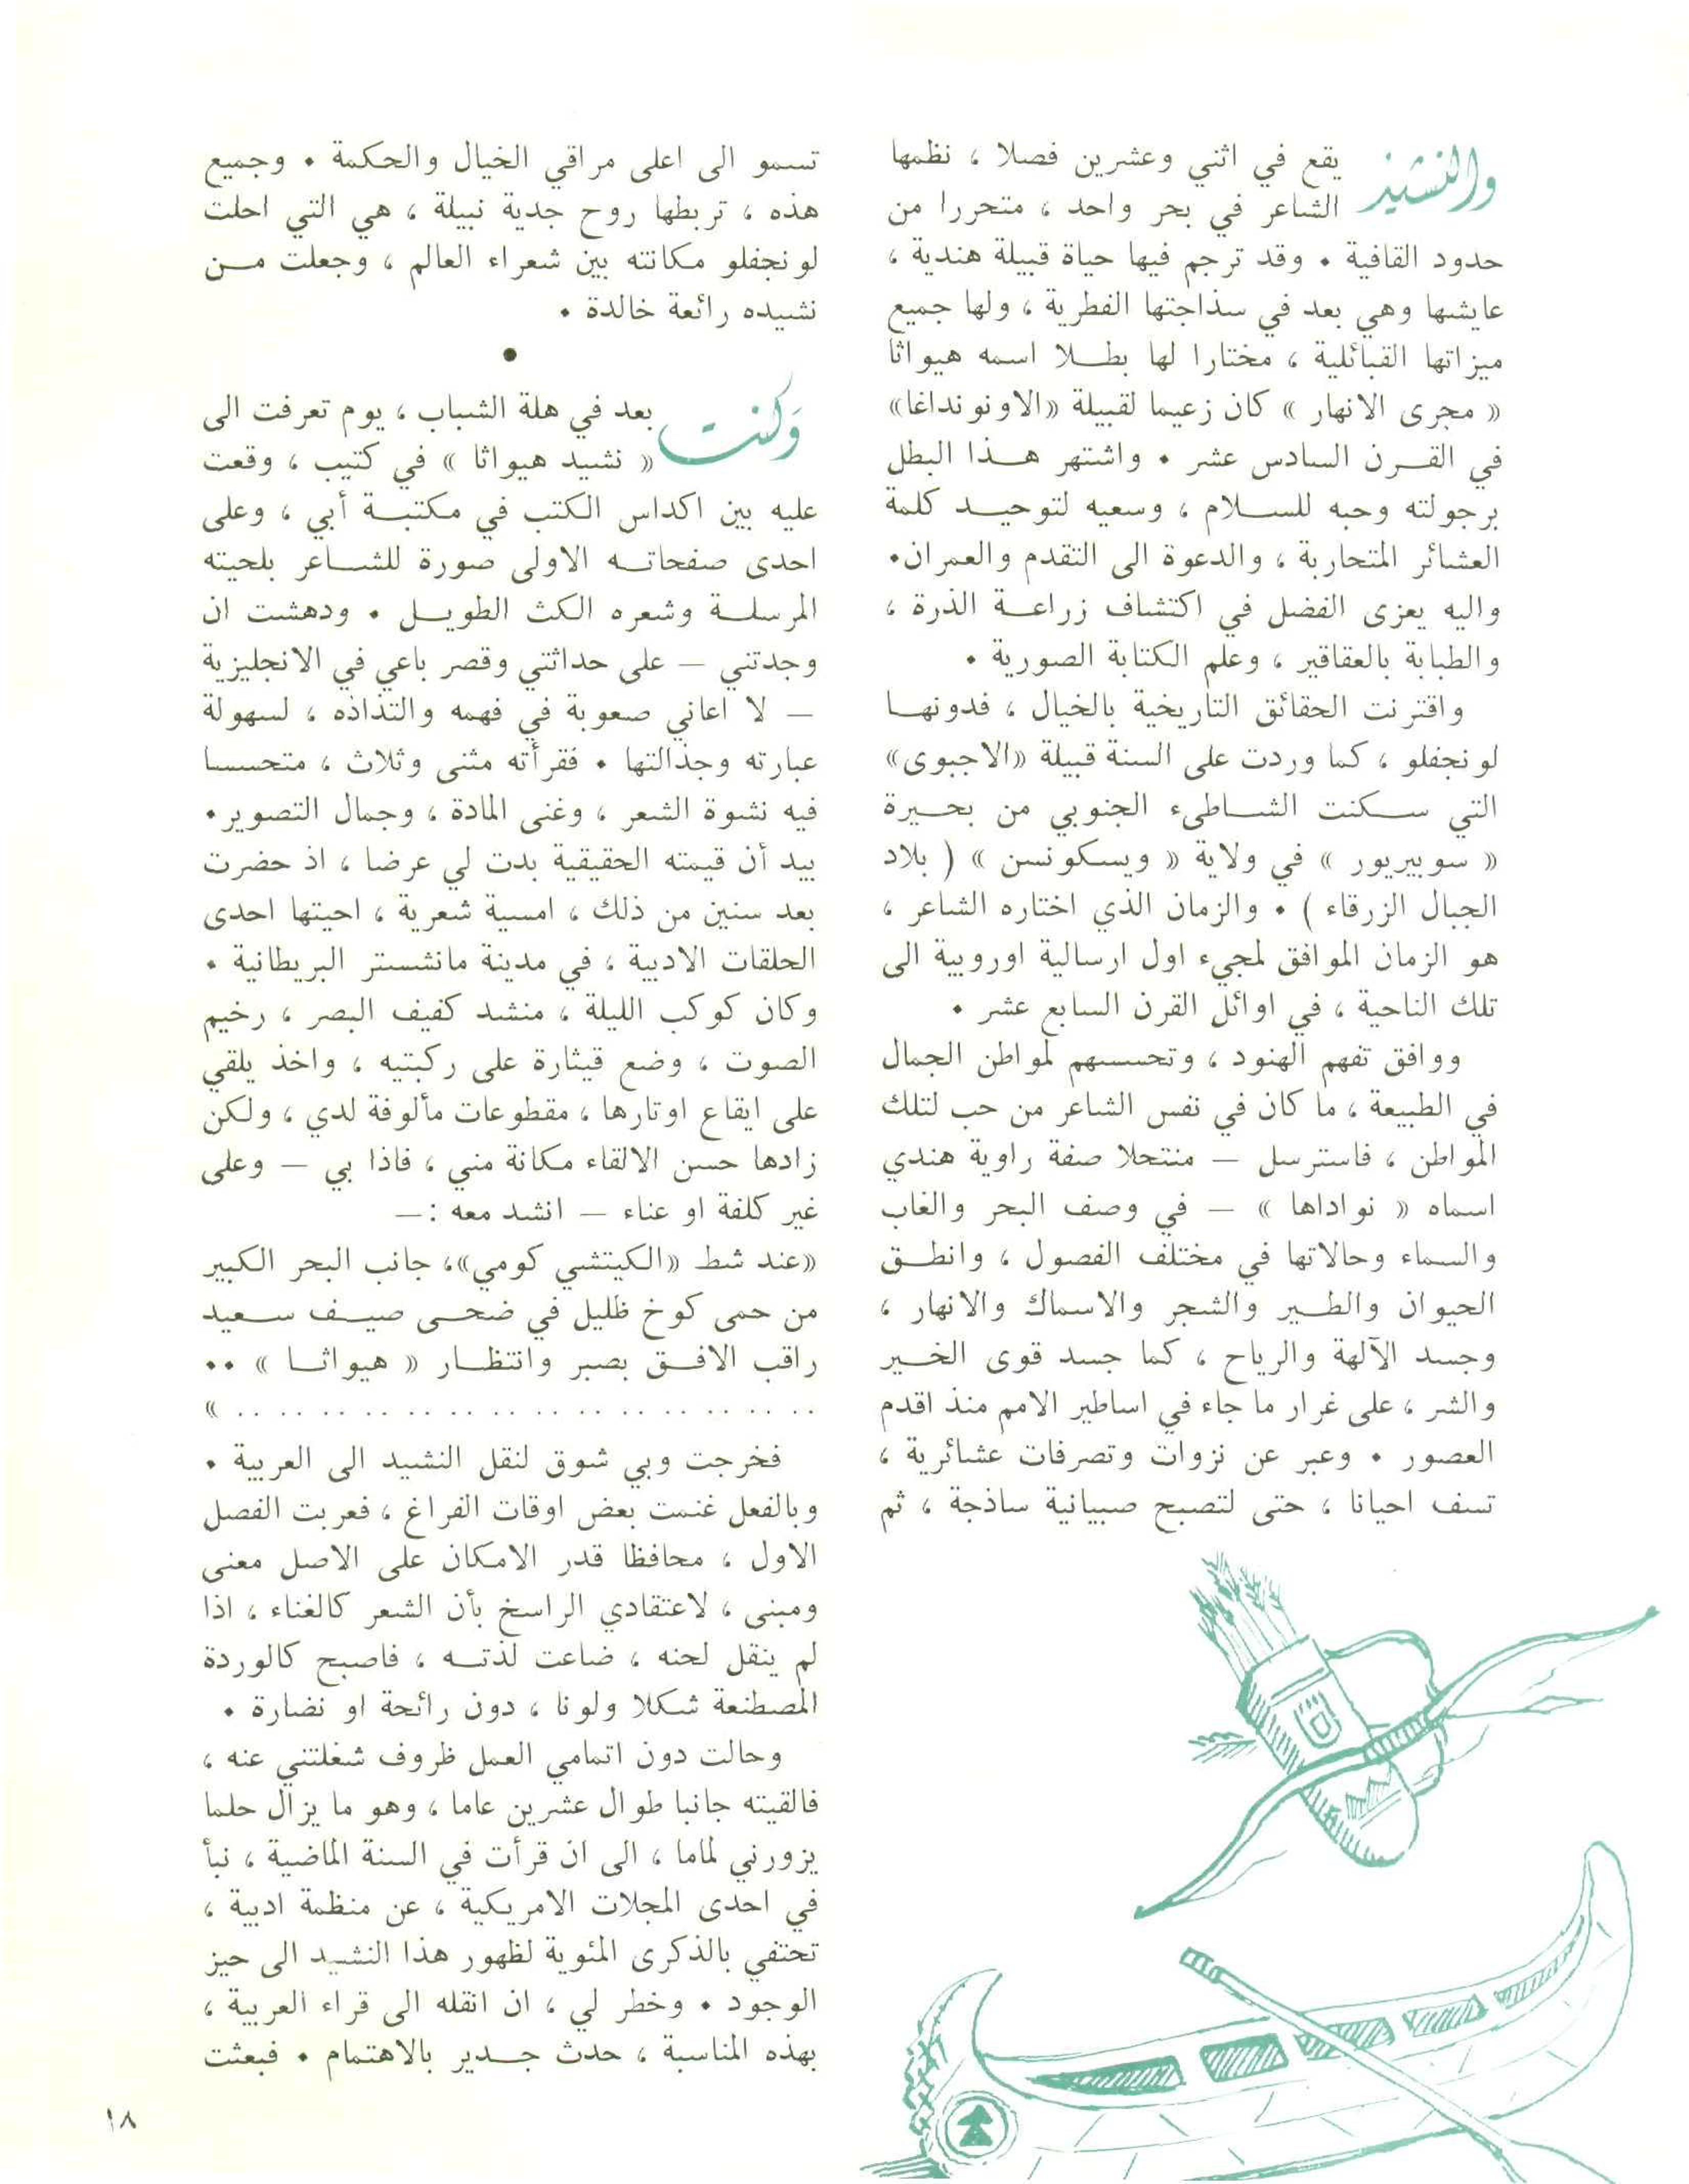 والنشيد يقع في اثني وعشرين فصلا ، نظمها
الشاعر في بحر واحد ، متحررا من
حدود القافية • وقد ترجم فيها حياة قبيلة هندية ،
عايشها وهي بعد في سذاجتها الفطرية ، ولها جميع
ميزاتها القبائلية ، مختارا لها بطلا اسمه هيواثا
« مجرى الانهار » كان زعيما لقبيلة «الاونونداغا»
في القرن السادس عشر • واشتهر هذا البطل
برجولته وحبه للسلام ، وسعيه لتوحيد كلمة
العشائر المتحاربة ، والدعوة الى التقدم والعمران•
واليه يعزى الفضل في اكتشاف زراعة الذرة ،
والطبابة بالعقاقير ، وعلم الكتابة الصورية •
واقترنت الحقائق التاريخية بالخيال ، فدونها
لونجفلو ، كما وردت على السنة قبيلة «الاجبوى»
التي سكنت الشاطىء الجنوبي من بحيرة
« سوبيريور » في ولاية « ويسكونسن » ( بلاد
الجبال الزرقاء ) • والزمان الذي اختاره الشاعر ،
هو الزمان الموافق لمجيء اول ارسالية اوروبية الى
تلك الناحية ، في اوائل القرن السابع عشر •
ووافق تفهم الهنود ، وتحسسهم لمواطن الجمال
في الطبيعة ، ما كان في نفس الشاعر من حب لتلك
المواطن ، فاسترسل — منتحلا صفة راوية هندي
اسماه « نواداها » — في وصف البحر والغاب
والسماء وحالاتها في مختلف الفصول ، وانطق
الحيوان والطير والشجر والاسماك والانهار ،
وجسد الآلهة والرياح ، كما جسد قوى الخير
والشر ، على غرار ما جاء في اساطير الامم منذ اقدم
العصور • وعبر عن نزوات وتصرفات عشائرية ،
تسف احيانا ، حتى لتصبح صبيانية ساذجة ، ثم
تسمو الى اعلى مراقي الخيال والحكمة • وجميع
هذه ، تربطها روح جدية نبيلة ، هي التي احلت
لونجفلو مكانته بين شعراء العالم ، وجعلت من
نشيده رائعة خالدة •
•
وكنت بعد في هلة الشباب ، يوم تعرفت الى
« نشيد هيواثا » في كتيب ، وقعت
عليه بين اكداس الكتب في مكتبة أبي ، وعلى
احدى صفحاته الاولى صورة للشاعر بلحيته
المرسلة وشعره الكث الطويل • ودهشت ان
وجدتني — على حداثتي وقصر باعي في الانجليزية
— لا اعاني صعوبة في فهمه والتذاذه ، لسهولة
عبارته وجذالتها • فقرأته مثنى وثلاث ، متحسسا
فيه نشوة الشعر ، وغنى المادة ، وجمال التصوير•
بيد أن قيمته الحقيقية بدت لي عرضا ، اذ حضرت
بعد سنين من ذلك ، امسية شعرية ، احيتها احدى
الحلقات الادبية ، في مدينة مانشستر البريطانية •
وكان كوكب الليلة ، منشد كفيف البصر ، رخيم
الصوت ، وضع قيثارة على ركبتيه ، واخذ يلقي
على ايقاع اوتارها ، مقطوعات مألوفة لدي ، ولكن
زادها حسن الالقاء مكانة مني ، فاذا بي — وعلى
غير كلفة او عناء — انشد معه :—
«عند شط «الكيتشي كومي»، جانب البحر الكبير
من حمى كوخ ظليل في ضحى صيف سعيد
راقب الافق بصبر وانتظار « هيواثا » ••
. . . . . . . . . . . . . . . . . . . . »
فخرجت وبي شوق لنقل النشيد الى العربية •
وبالفعل غنمت بعض اوقات الفراغ ، فعربت الفصل
الاول ، محافظا قدر الامكان على الاصل معنى
ومبنى ، لاعتقادي الراسخ بأن الشعر كالغناء ، اذا
لم ينقل لحنه ، ضاعت لذته ، فاصبح كالوردة
المصطنعة شكلا ولونا ، دون رائحة او نضارة •
وحالت دون اتمامي العمل ظروف شغلتني عنه ،
فالقيته جانبا طوال عشرين عاما ، وهو ما يزال حلما
يزورني لماما ، الى ان قرأت في السنة الماضية ، نبأ
في احدى المجلات الامريكية ، عن منظمة ادبية ،
تحتفي بالذكرى المئوية لظهور هذا النشيد الى حيز
الوجود • وخطر لي ، ان انقله الى قراء العربية ،
بهذه المناسبة ، حدث جدير بالاهتمام • فبعثت
١٨